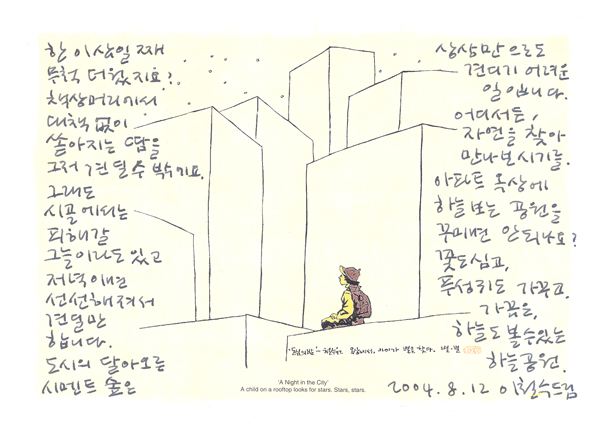 한 이삼일 째
무척 더웠지요?
책상머리에서
대책 없이
쏟아지는 땀을
그저 견딜 수 밖에요.
그래도
시골에서는
피해갈
그늘이라도 있고
저녁이면
선선해져서
견딜만
합니다.
도시의 달아오른
시멘트 숲은
상상만으로도
견디기 어려운
일입니다.
어디서든,
자연을 찾아
만나보시기를.
아파트 옥상에
하늘 보는 공원을
꾸미면 안 되나요?
꽃도 심고,
푸성귀도 가꾸고.
가끔은,
하늘도 볼 수 있는
하늘공원.
2004. 8. 12 이철수 드림
옥상에서. 아이가 별을 찾다. 별. 별
'A Night in the City'
A child on a rooftop looks for stars. Stars, stars.